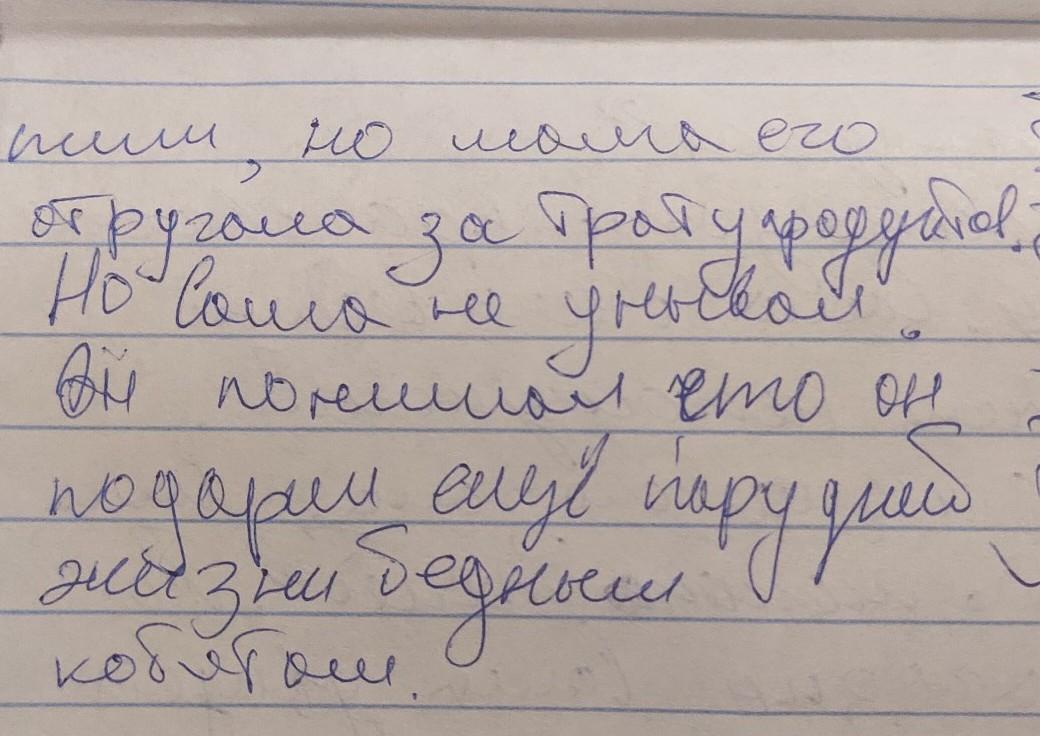 пили, но мама его
отругала за трату продуктов.
Но Саша не унывал.
Он понимал что он
подарил ещё пару дней
жизни бедным
котятам.